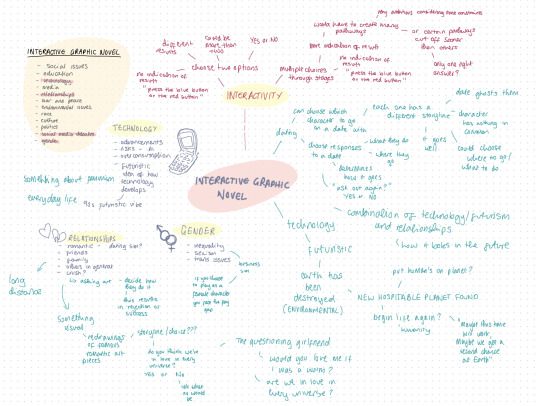 INTERACTIVE GRAPHIC NOVEL
- social issues
- education
- technology
- media
- relationships
- war and peace
- environmental issues
- race
- culture
- politics
- gender
TECHNOLOGY
- advancements
- risks - AI
- overconsumption
futuristic
idea of how
technology
develops
90s futuristic vibe
something about
everyday life
different
results
could be
more than
two
YES or NO
choose two options
no indication of
result
"press the blue button
or the red button"
INTERACTIVITY
multiple choices
through stages
some indication of result
no indication of
result
"press the blue button
or the red button"
would have to create many
pathways
very ambitious considering time constraints
or certain pathways
cut off sooner
than others
only one right
answer?
INTERACTIVE GRAPHIC
NOVEL
dating
can choose which
character to go
on a date with
each one has a
different storyline
date ghosts them
character
has nothing in
common
it goes
well
could choose
where to go/
what to do
choose responses
to a date
what they do
where they
go
determines
how it goes
"ask out again?"
YES or NO
combination of technology/futurism
and relationships
how it looks in the future
technology
futuristic
earth has
been
destroyed
(ENVIRONMENTAL)
NEW HOSPITABLE PLANET FOUND
put humans on planet?
begin life again?
humanity
"Maybe this time
will work
Maybe we get a
second chance
at Earth"
RELATIONSHIPS
- romantic - dating sim?
- friends
- family
- others in general
- crush?
long
distance
asking out
decide how
they do it
this results
in rejection or
success
something
visual
redrawings of
famous
romantic art
pieces
storyline/choice???
do you think we're
in love in every
universe?
YES or NO
GENDER
- inequality
- sexism
- trans issues
business
sim
if you choose
to play as a
female character
you get a pay
gap
The questioning girlfriend
would you love me if
I was a worm?
are we in love in
every universe?